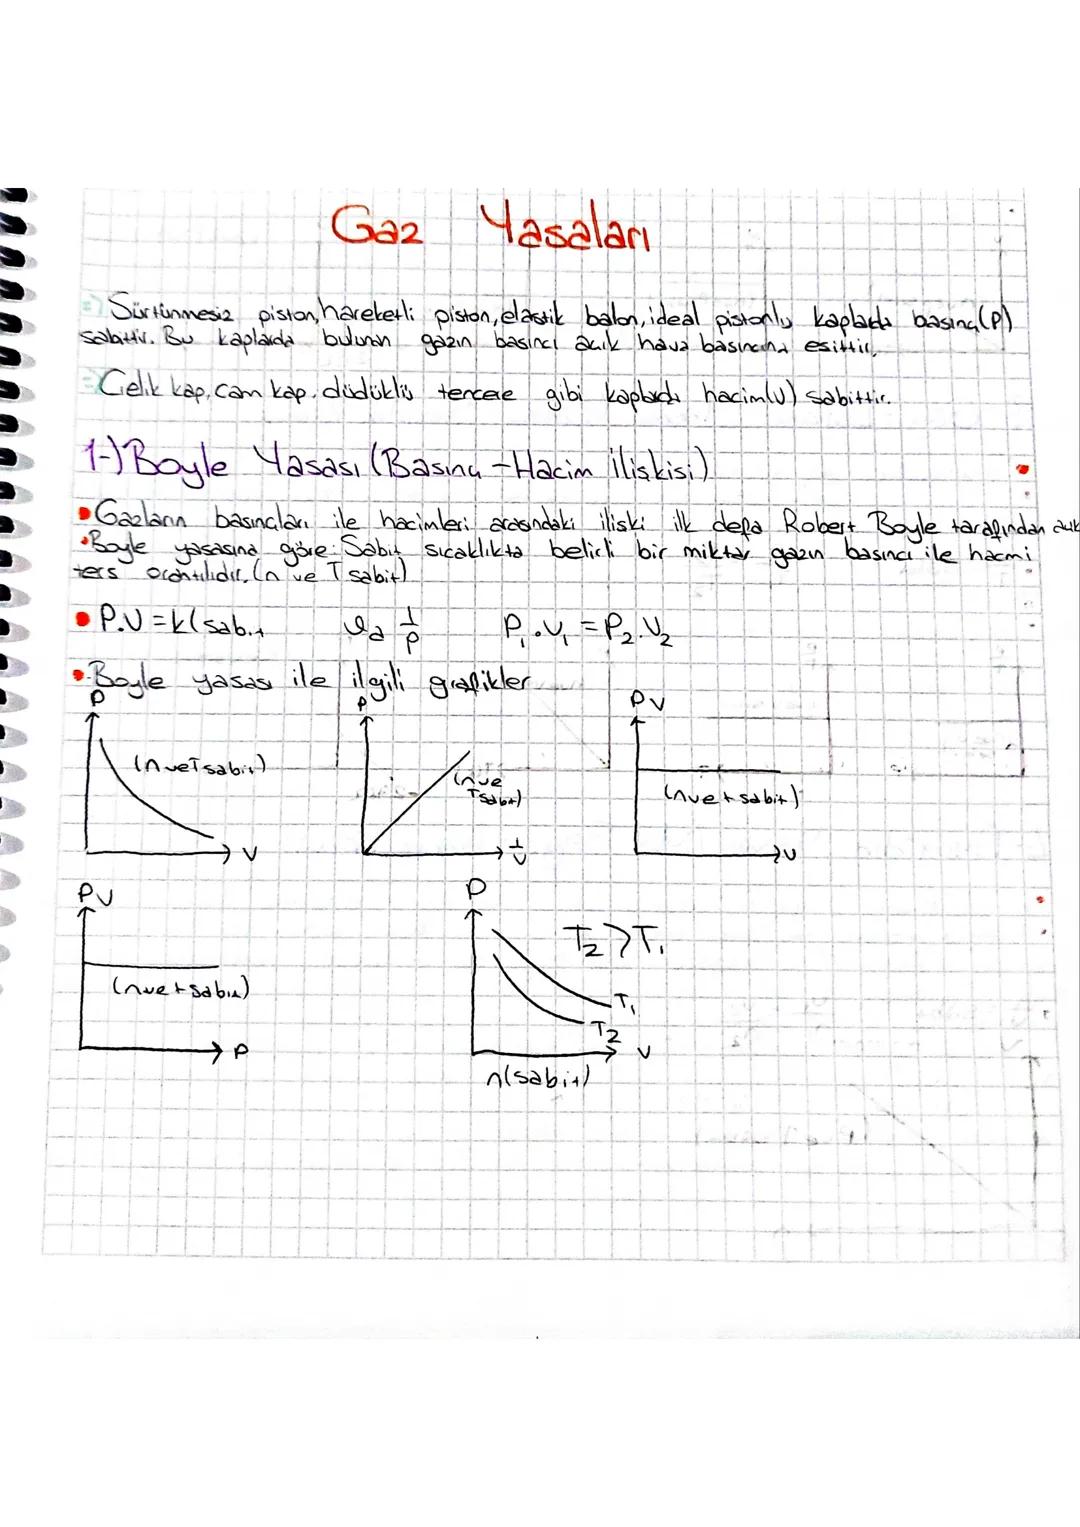 Gaz Yasaları
=) Sürtünmesiz piston, hareketli piston, elastik balon, ideal pistonlu kaplarda basınç(P)
sabittir. Bu kaplarda bulunan gazın basıncı açık hava basıncına eşittir.
=) Çelik kap, cam kap, düdüklü tencere gibi kaplarda hacim(V) sabittir.
1-) Boyle Yasası (Basınç-Hacim ilişkisi)
• Gazların basınçları ile hacimleri arasındaki ilişki ilk defa Robert Boyle tarafından
• Boyle yasasına göre: Sabit sıcaklıkta belirli bir miktar gazın basıncı ile hacmi
ters orantılıdır. (n ve T sabit)
• P.V = k(sabit V α 1/P P₁.V₁ = P₂.V₂
• Boyle yasası ile ilgili grafikler
P P PV
(n ve T sabit) (n ve (n ve t sabit)
T sabit)
V 1/V V
PV P
T₂ > T₁
(n ve t sabit) T₁
T₂
P V
n(sabit)